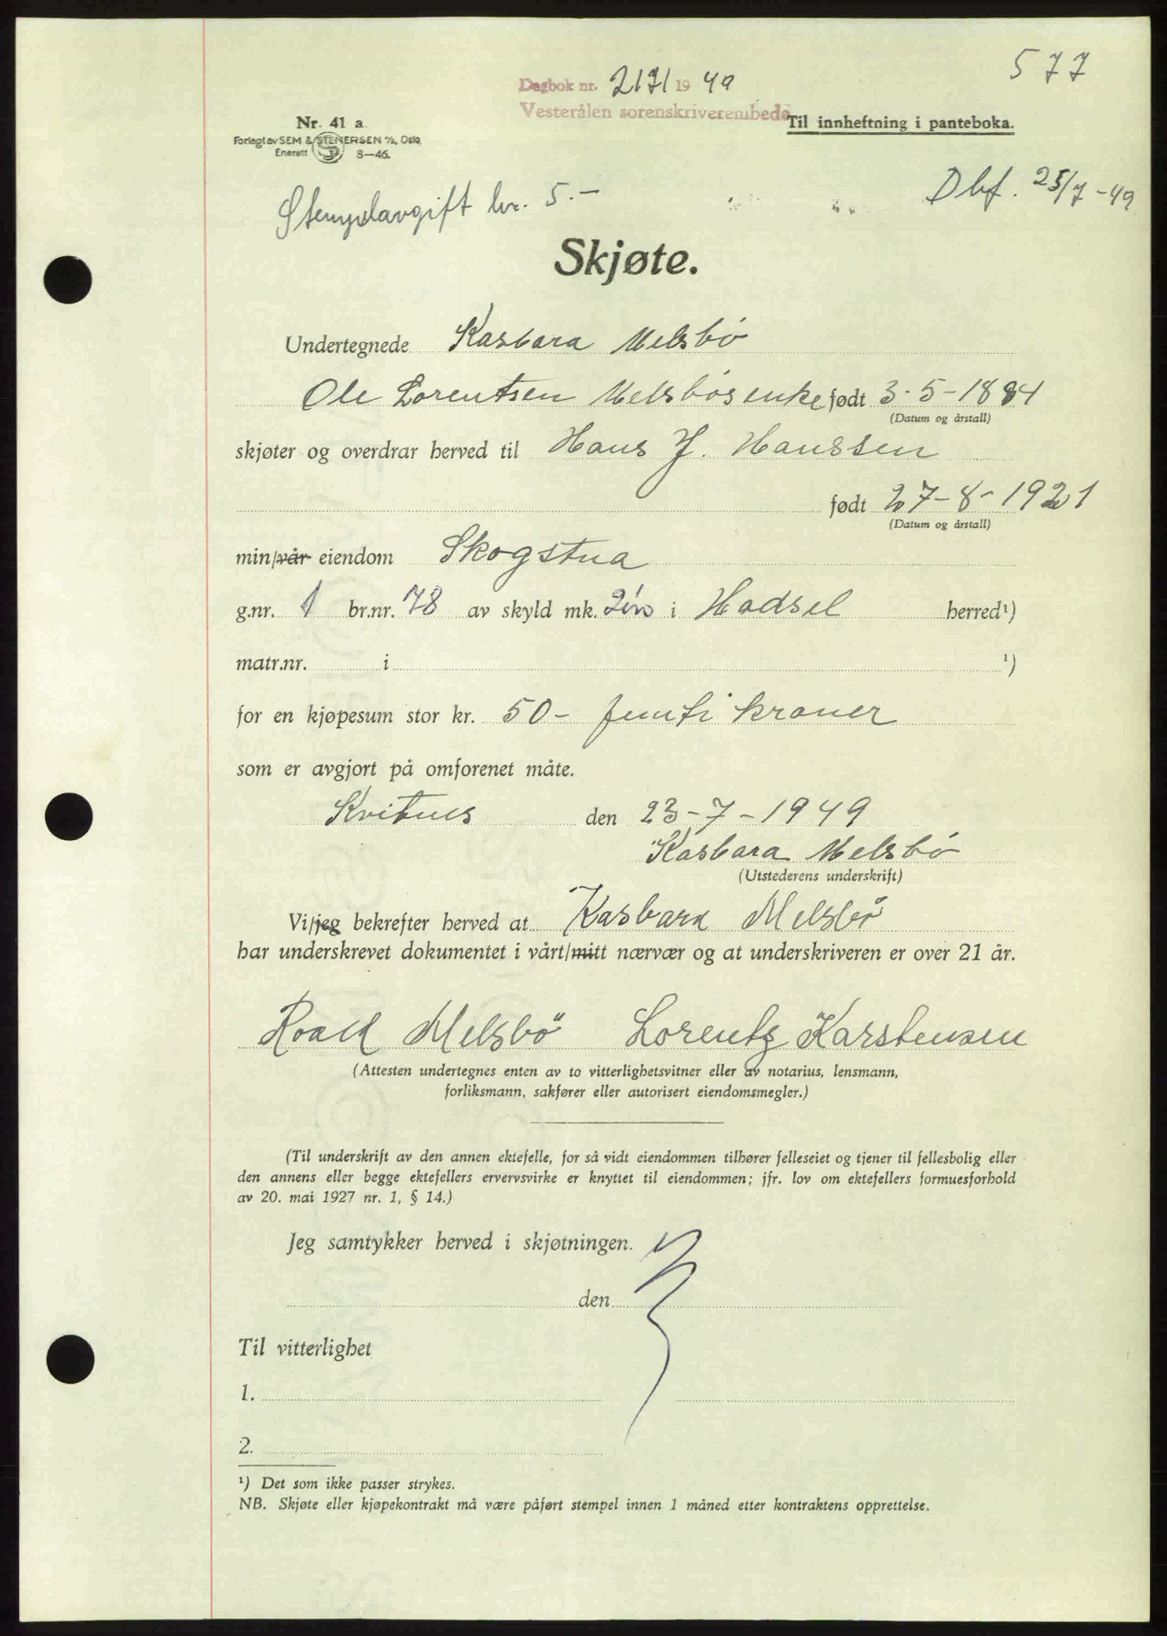 577
Dagbok nr. 2171 1949
Vesterålen sorenskriverembede
Til innheftning i panteboka.
Nr. 41 a.
Forlagt av SEM & STENERSEN A/S, Oslo
Enerett 8—46.
Dbf. 25/7-49
Stempelavgift kr. 5.-
Skjøte.
Undertegnede Kasbara Melsbø
Ole Lorentsen Melsbøs enke født 3-5-1884
(Datum og årstall)
skjøter og overdrar herved til Hans J. Hanssen
født 27-8-1921
(Datum og årstall)
min/vår eiendom Skogstua
g.nr. 1 br.nr. 78 av skyld mk. i Hadsel herred¹)
matr.nr. i ¹)
for en kjøpesum stor kr. 50- femti kroner
som er avgjort på omforenet måte.
Kvitnes den 23-7-1949
Kasbara Melsbø
(Utstederens underskrift)
Vi/jeg bekrefter herved at Kasbara Melsbö
har underskrevet dokumentet i vårt/mitt nærvær og at underskriveren er over 21 år.
Roald Melsbö Lorentz Karstensen
(Attesten undertegnes enten av to vitterlighetsvitner eller av notarius, lensmann,
forliksmann, sakfører eller autorisert eiendomsmegler.)
(Til underskrift av den annen ektefelle, for så vidt eiendommen tilhører felleseiet og tjener til fellesbolig eller
den annens eller begge ektefellers ervervsvirke er knyttet til eiendommen; jfr. lov om ektefellers formuesforhold
av 20. mai 1927 nr. 1, § 14.)
Jeg samtykker herved i skjøtningen.
den
Til vitterlighet
1.
2.
¹) Det som ikke passer strykes.
NB. Skjøte eller kjøpekontrakt må være påført stempel innen 1 måned etter kontraktens opprettelse.